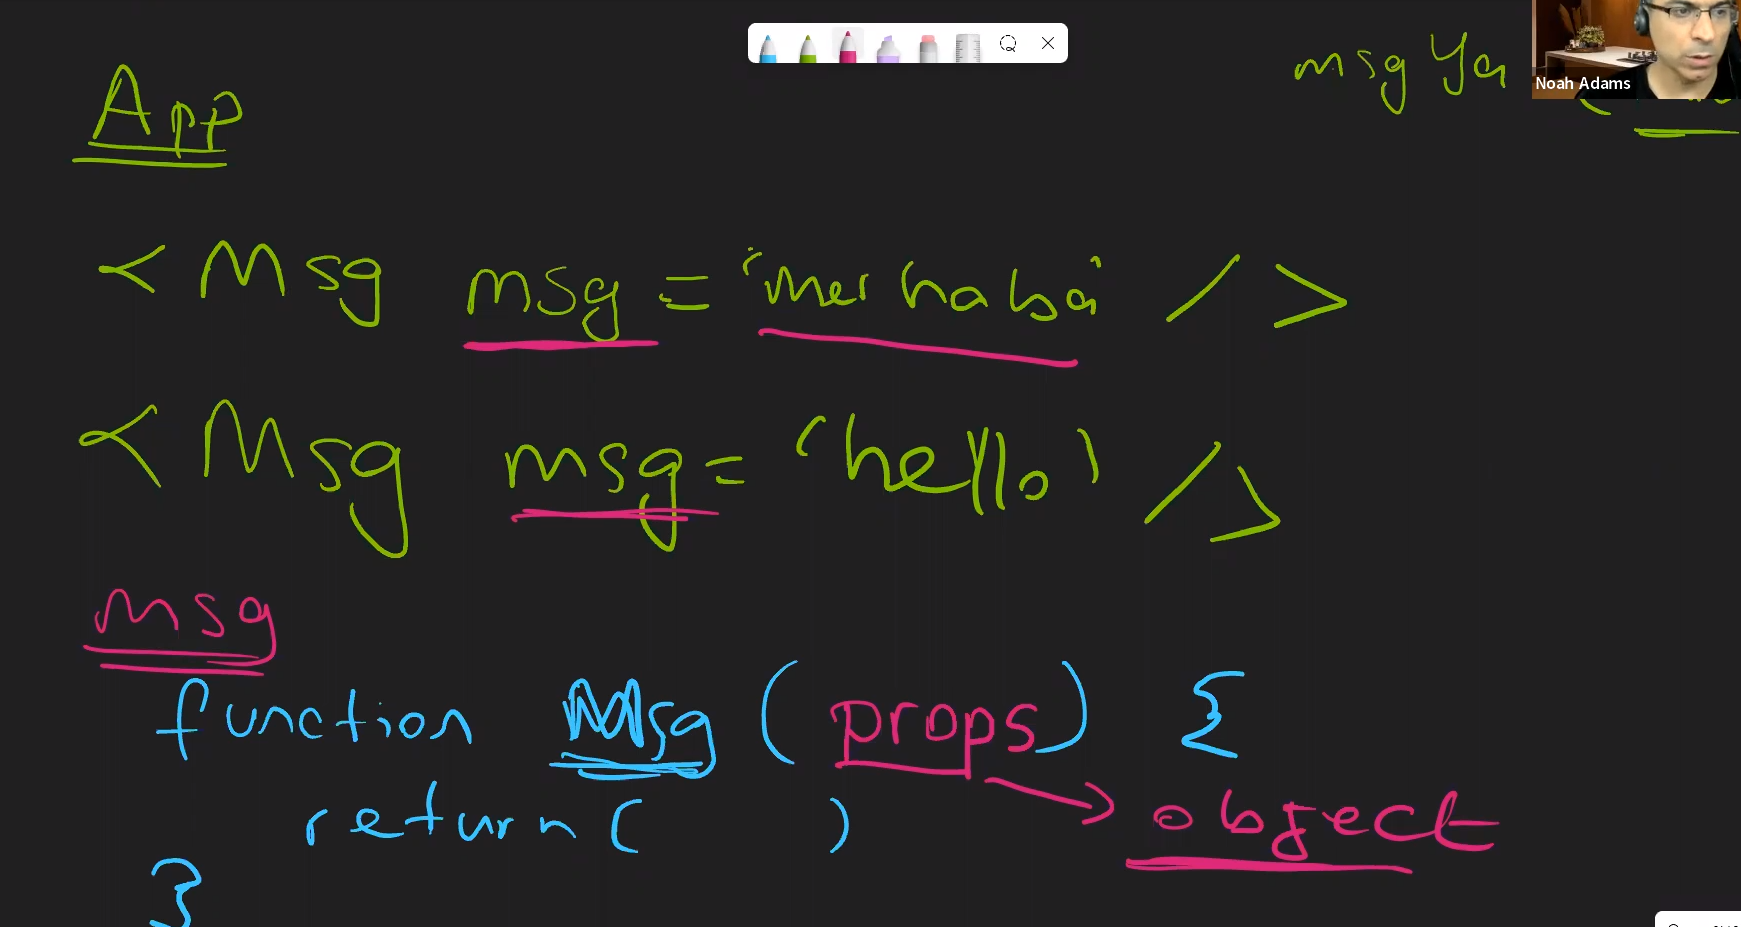 App
msg Ya
Noah Adams
< Msg msg = 'merhaba' />
< Msg msg = 'hello' />
msg
function Msg ( props ) {
return ( )
object
}